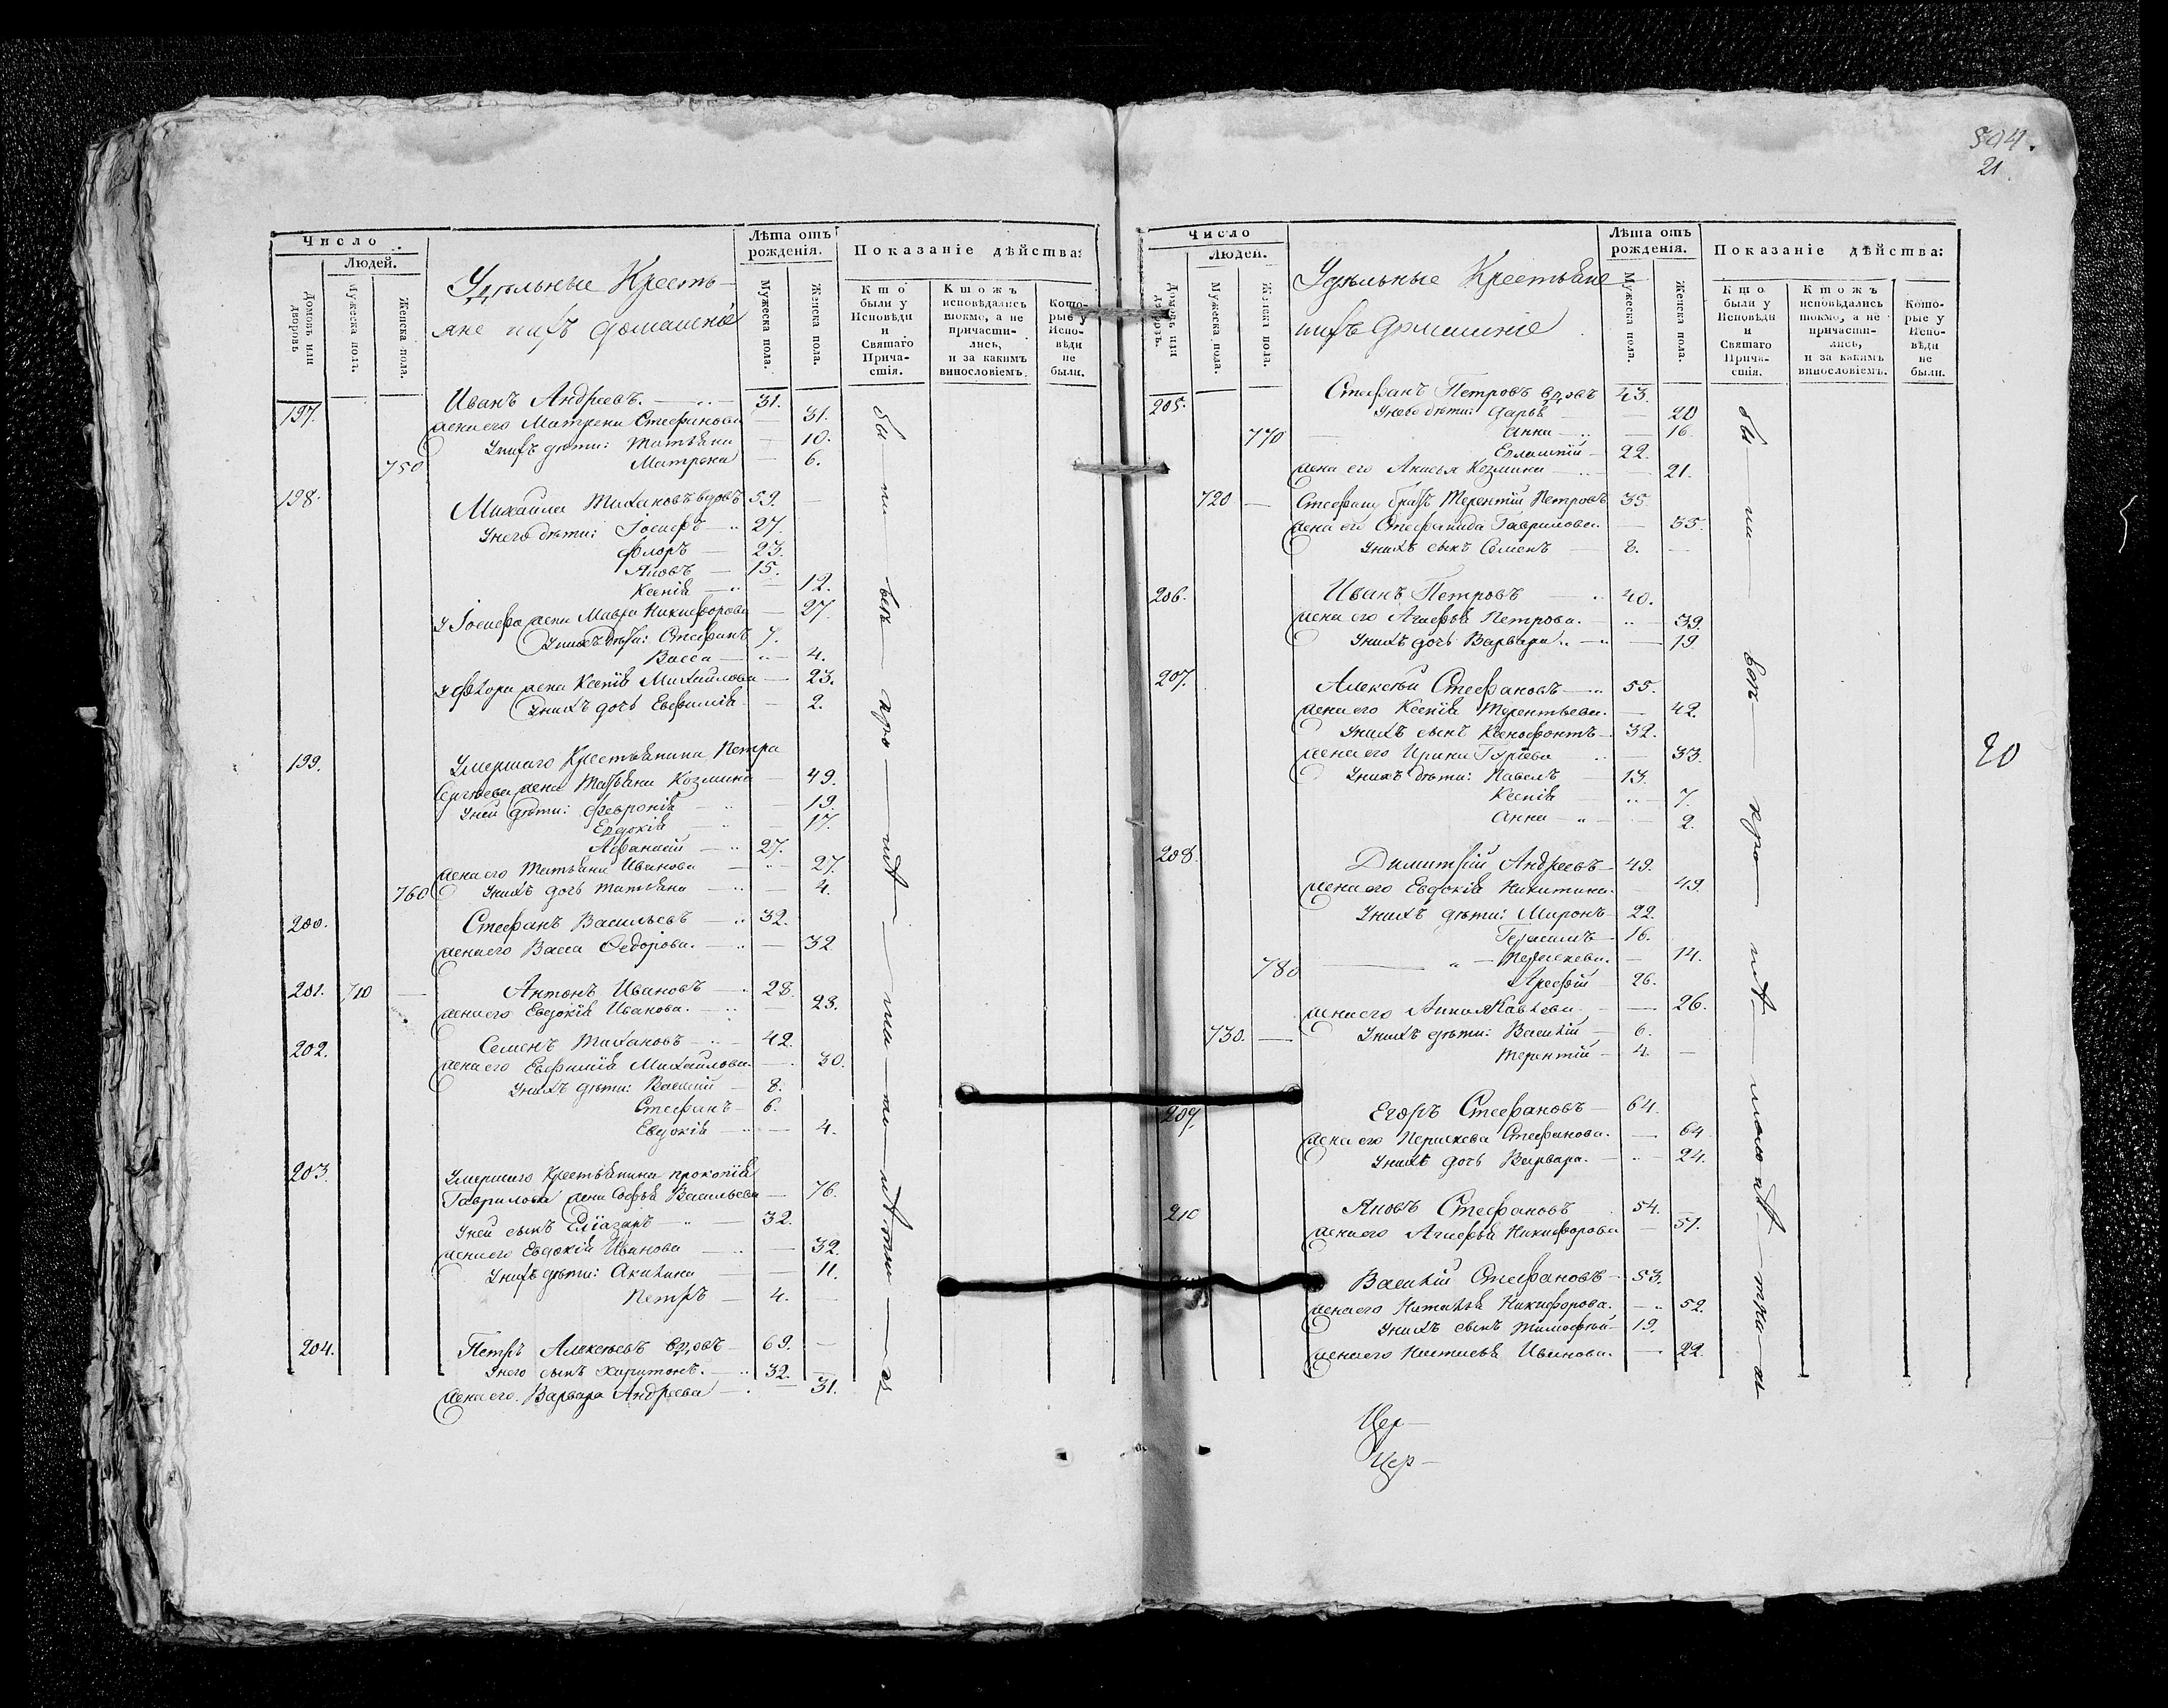 Число
Людей.
Домовъ или дворовъ
Мужеска пола.
Женска пола.
Удѣльные Кресть-
яне ихъ домашніе
Лѣта отъ рожденія.
Мужеска пола.
Женска пола.
Показаніе дѣйства:
Кто были у Исповѣди и Святаго Причастія.
Ктожъ исповѣдались токмо, а не причастились, и за какимъ винословіемъ.
Которые у Исповѣди не были.
197. Иванъ Андреевъ. 31.
жена его Матрена Стефанова 31.
у нихъ дѣти: Татьяна 10.
750 Матрона 6.
198. Михаила Титановъ вдовъ 59.
у него дѣти: Іосифъ 27.
Флоръ 23.
Яковъ 15.
Ксенія 12.
у Іосифа жена Мавра Никифорова 27.
у нихъ дѣти: Стефанъ 7.
Васса 4.
у Флора жена Ксенія Михайлова 23.
у нихъ дочь Евфимія 2.
199. Умершаго Крестьянина Петра
Сергѣева жена Татьяна Козмина 49.
у ней дѣти: Февронія 19.
Евдокія 17.
Афанасій 27.
жена его Татьяна Иванова 27.
760 у нихъ дочь Татьяна 4.
200. Стефанъ Васильевъ 32.
жена его Васса Ѳедорова. 32
201. 710 Антонъ Ивановъ 28.
жена его Евдокія Иванова. 28.
202. Семенъ Титановъ 42.
жена его Евфимія Михайлова. 30.
у нихъ дѣти: Василій 8.
Стефанъ 6.
Евдокія 4.
203. Умершаго Крестьянина Прокопія
Гаврилова жена Софья Васильева 76.
у ней сынъ Еліазаръ 32.
жена его Евдокія Иванова 32.
у нихъ дѣти: Акилина 11.
Петръ 4.
204. Петръ Алексѣевъ вдовъ 69.
у него сынъ Харитонъ. 32.
жена его Варвара Андреева 31.
504.
21
Число
Людей.
Домовъ или дворовъ.
Мужеска пола.
Женска пола.
Удѣльные Крестьяне
ихъ домашніе
Лѣта отъ рожденія.
Мужеска пола.
Женска пола.
Показаніе дѣйства:
Кто были у Исповѣди и Святаго Причастія.
Ктожъ исповѣдались токмо, а не причастились, и за какимъ винословіемъ.
Которые у Исповѣди не были.
205. Стефанъ Петровъ вдовъ 43.
у него дѣти: Дарья 20
770 Анна 16
Евлампій 22.
жена его Анисья Козмина 21.
720 Стефану братъ Терентій Петровъ 35
жена его Стефанида Гаврилова. 35.
у нихъ сынъ Семенъ 8.
206. Иванъ Петровъ 40.
жена его Агафья Петрова. 39.
у нихъ дочь Варвара 19.
207. Алексѣй Стефановъ 55.
жена его Ксенія Терентьева. 42.
у нихъ сынъ Ксенофонтъ 32.
жена его Ирина Гурьева 33.
у нихъ дѣти: Павелъ 13.
Ксенія 7.
Анна 2.
208. Димитрій Андреевъ 49.
жена его Евдокія Никитина. 49.
у нихъ дѣти: Миронъ 22.
Герасимъ 16.
780 Параскева. 14.
Арефій 26.
жена его Анна 26.
730. у нихъ дѣти: Василій 6.
Терентій 4.
209. Егоръ Стефановъ 64.
жена его Параскева Стефанова. 64
у нихъ дочь Варвара. 24.
210 Яковъ Стефановъ 54.
жена его Агафья Никифорова 51.
Василій Стефановъ 53.
жена его Наталья Никифорова. 52.
у нихъ сынъ Тимофѣй 19.
жена его Настасья Иванова. 22.
20
Цер-
Цер-